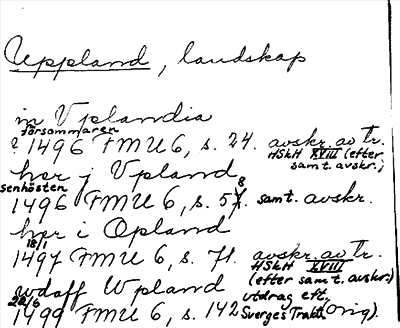 Uppland, landskap
in Vplandia
försommaren
? 1496 FMU 6, s. 24. avskr. av tr.
HSkH XVIII (efter
samt. avskr.)
her j Vpland
senhösten
1496 FMU 6, s. 58. samt. avskr.
her i Opland
18/1
1497 FMU 6, s. 71. avskr. av tr.
HSkH XVIII
(efter samt. avskr.)
wdaff Wpland
utdrag eft.
28/6
1499 FMU 6, s. 142 Sverges Trakt. Orig).